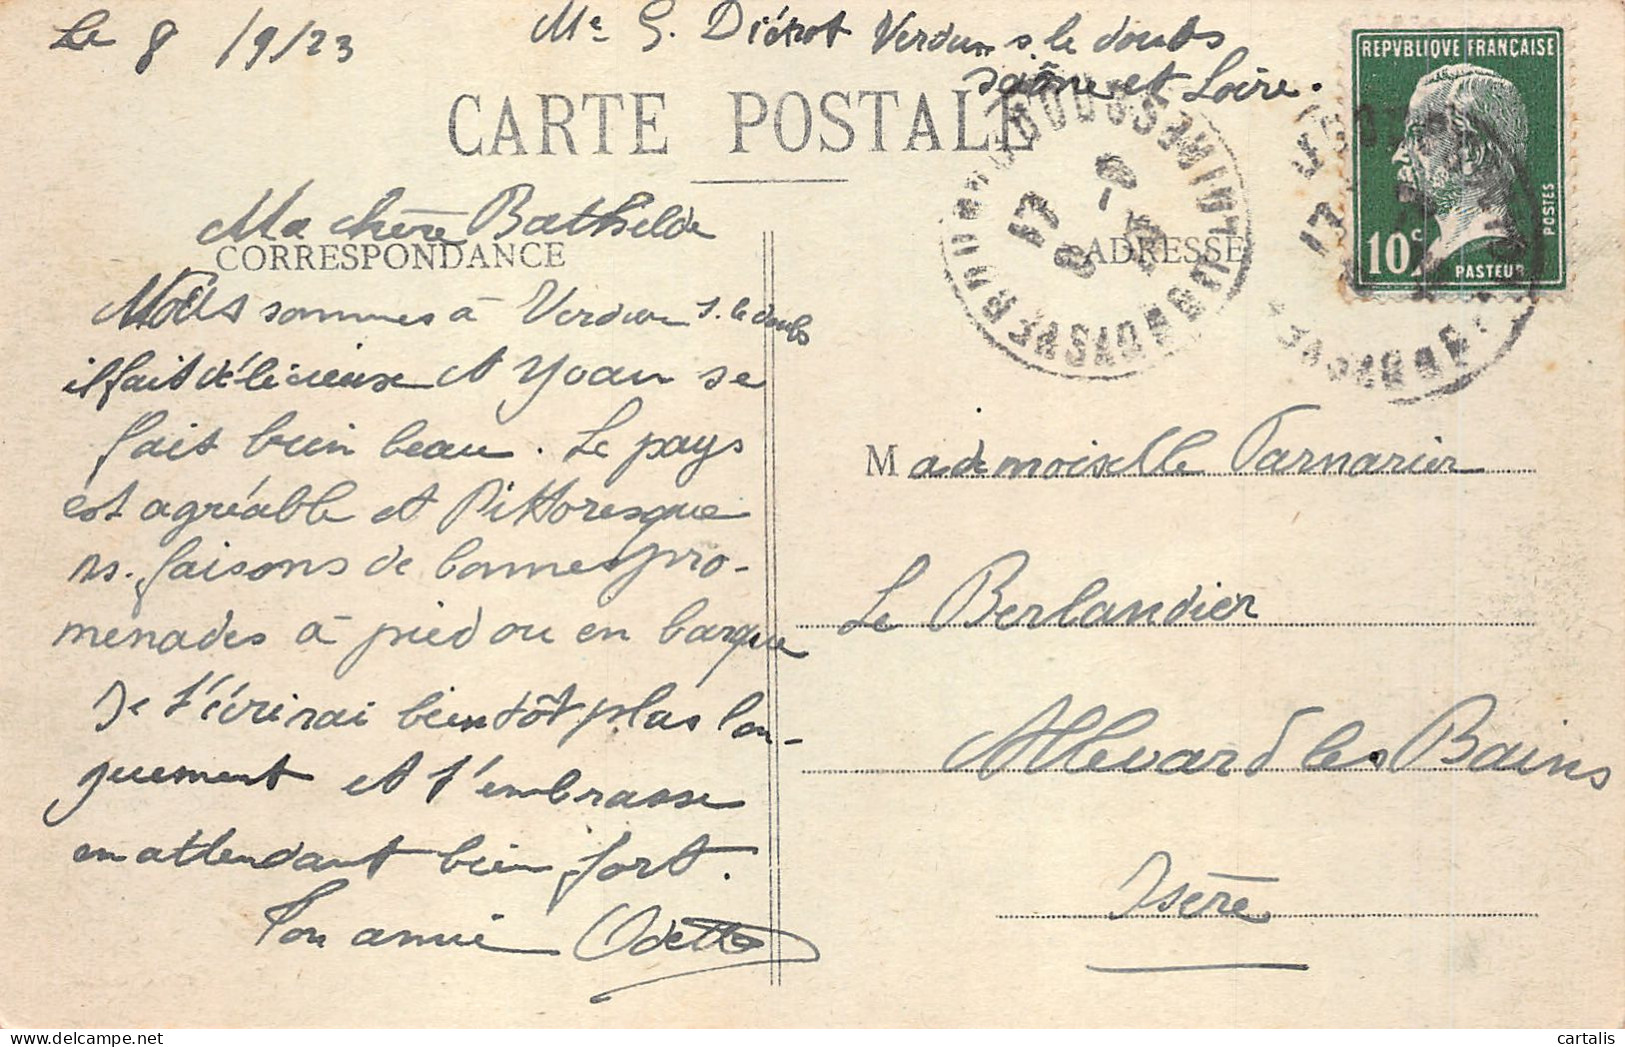 Le 8 /9/23
Me G. Diérot Verdun s. le doubs
Saône et Loire.
CARTE POSTALE
REPVBLIQVE FRANÇAISE
10c
POSTES
PASTEUR
Ma chère Bathilde
CORRESPONDANCE
ADRESSE
Nous sommes à Verdun s. le doubs
il fait délicieux et Yvan se
fait bien beau. Le pays
est agréable et Pittoresque
ns. faisons de bonnes pro-
menades à pied ou en barque
Je t'écrirai bientôt plus lon-
guement et t'embrasse
en attendant bien fort.
Ton amie Odette
Mademoiselle Tarnarier
Le Berlandier
Allevard les Bains
Isère
cartalis